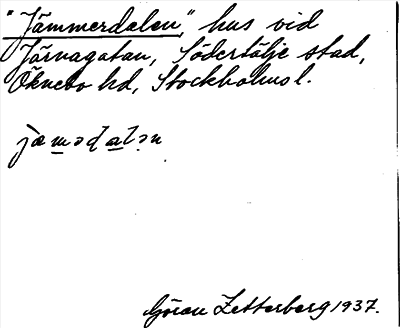 "Jämmerdalen", hus vid
Järnagatan, Södertälje stad,
Öknebo hd, Stockholms l.
jæmədalən
Göran Zetterberg 1937.